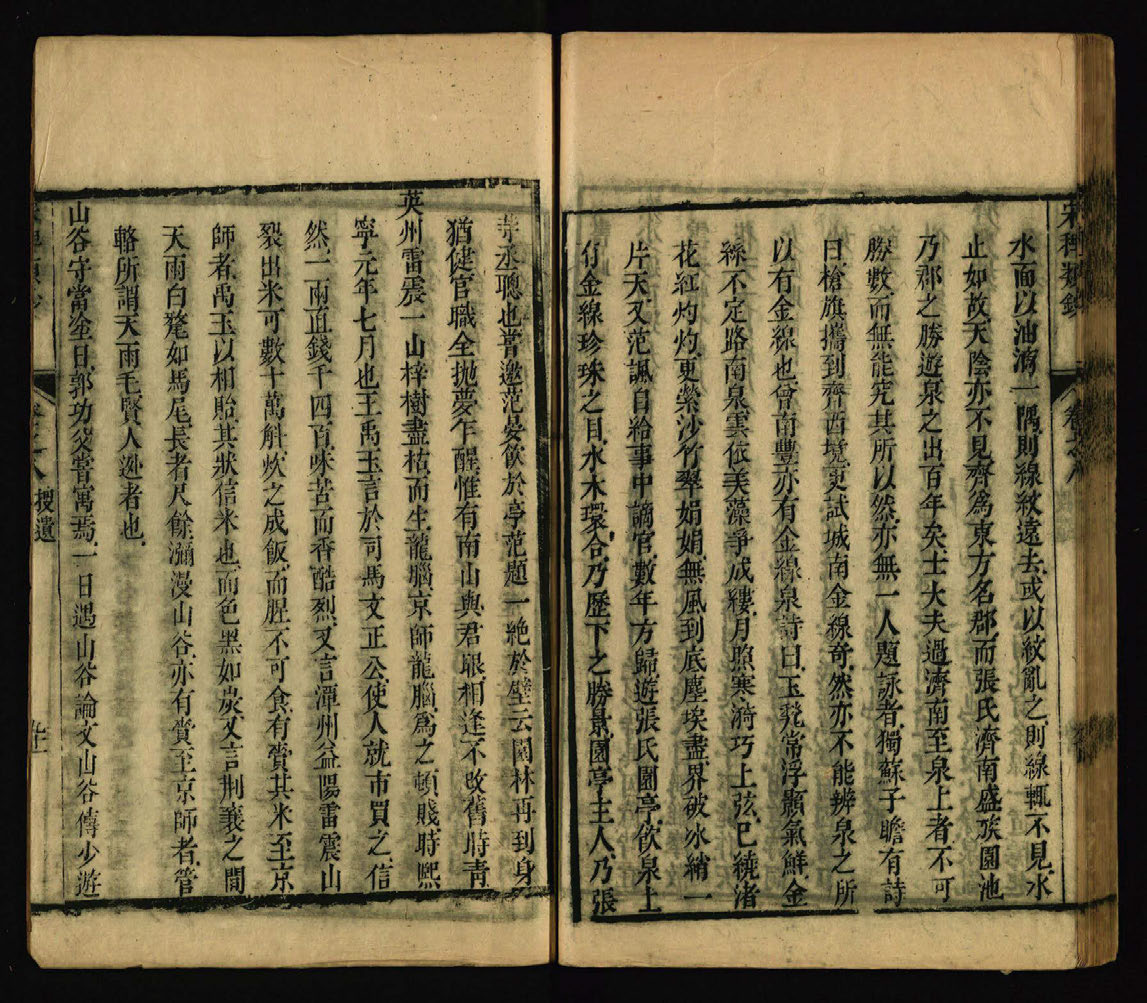 宋稗類鈔
卷之八
水面以油滴一隅則線紋遠去或以紋亂之則線輒不見水
止如故天陰亦不見齊為東方名郡而張氏濟南盛族園池
乃郡之勝遊泉之出百年矣士大夫過濟南至泉上者不可
勝數而無能究其所以然亦無一人題詠者獨蘇子瞻有詩
曰槍旗攜到齊西境更試城南金線奇然亦不能辨泉之所
以有金線也曾南豐亦有金線泉詩曰玉甃常浮顥氣鮮金
絲不定路南泉雲依美藻爭成縷月照寒漪巧上弦已繞渚
花紅灼灼更縈沙竹翠娟娟無風到底塵埃盡界破冰綃一
片天又范諷自給事中謫官數年方歸遊張氏園亭飲泉上
有金線珍珠之目水木環合乃歷下之勝景園亭主人乃張
寺丞聰也嘗邀范晏飲於亭范題一絶於壁云園林再到身
猶健官職全拋夢乍醒惟有南山與君眼相逢不改舊時青
英州雷震一山梓樹盡枯而生龍腦京師龍腦為之頓賤時熙
寧元年七月也王禹玉言於司馬文正公使人就市買之信
然一兩直錢千四百味苦而香酷烈又言潭州益陽雷震山
裂出米可數十萬斛炊之成飯而腥不可食有賫其米至京
師者禹玉以相貽其狀信米也而色黑如炭又言荆襄之間
天雨白氂如馬尾長者尺餘瀰漫山谷亦有賫至京師者管
輅所謂天雨毛賢人逃者也
山谷守當塗日郭功父嘗寓焉一日過山谷論文山谷傳少遊
卷之八 搜遺